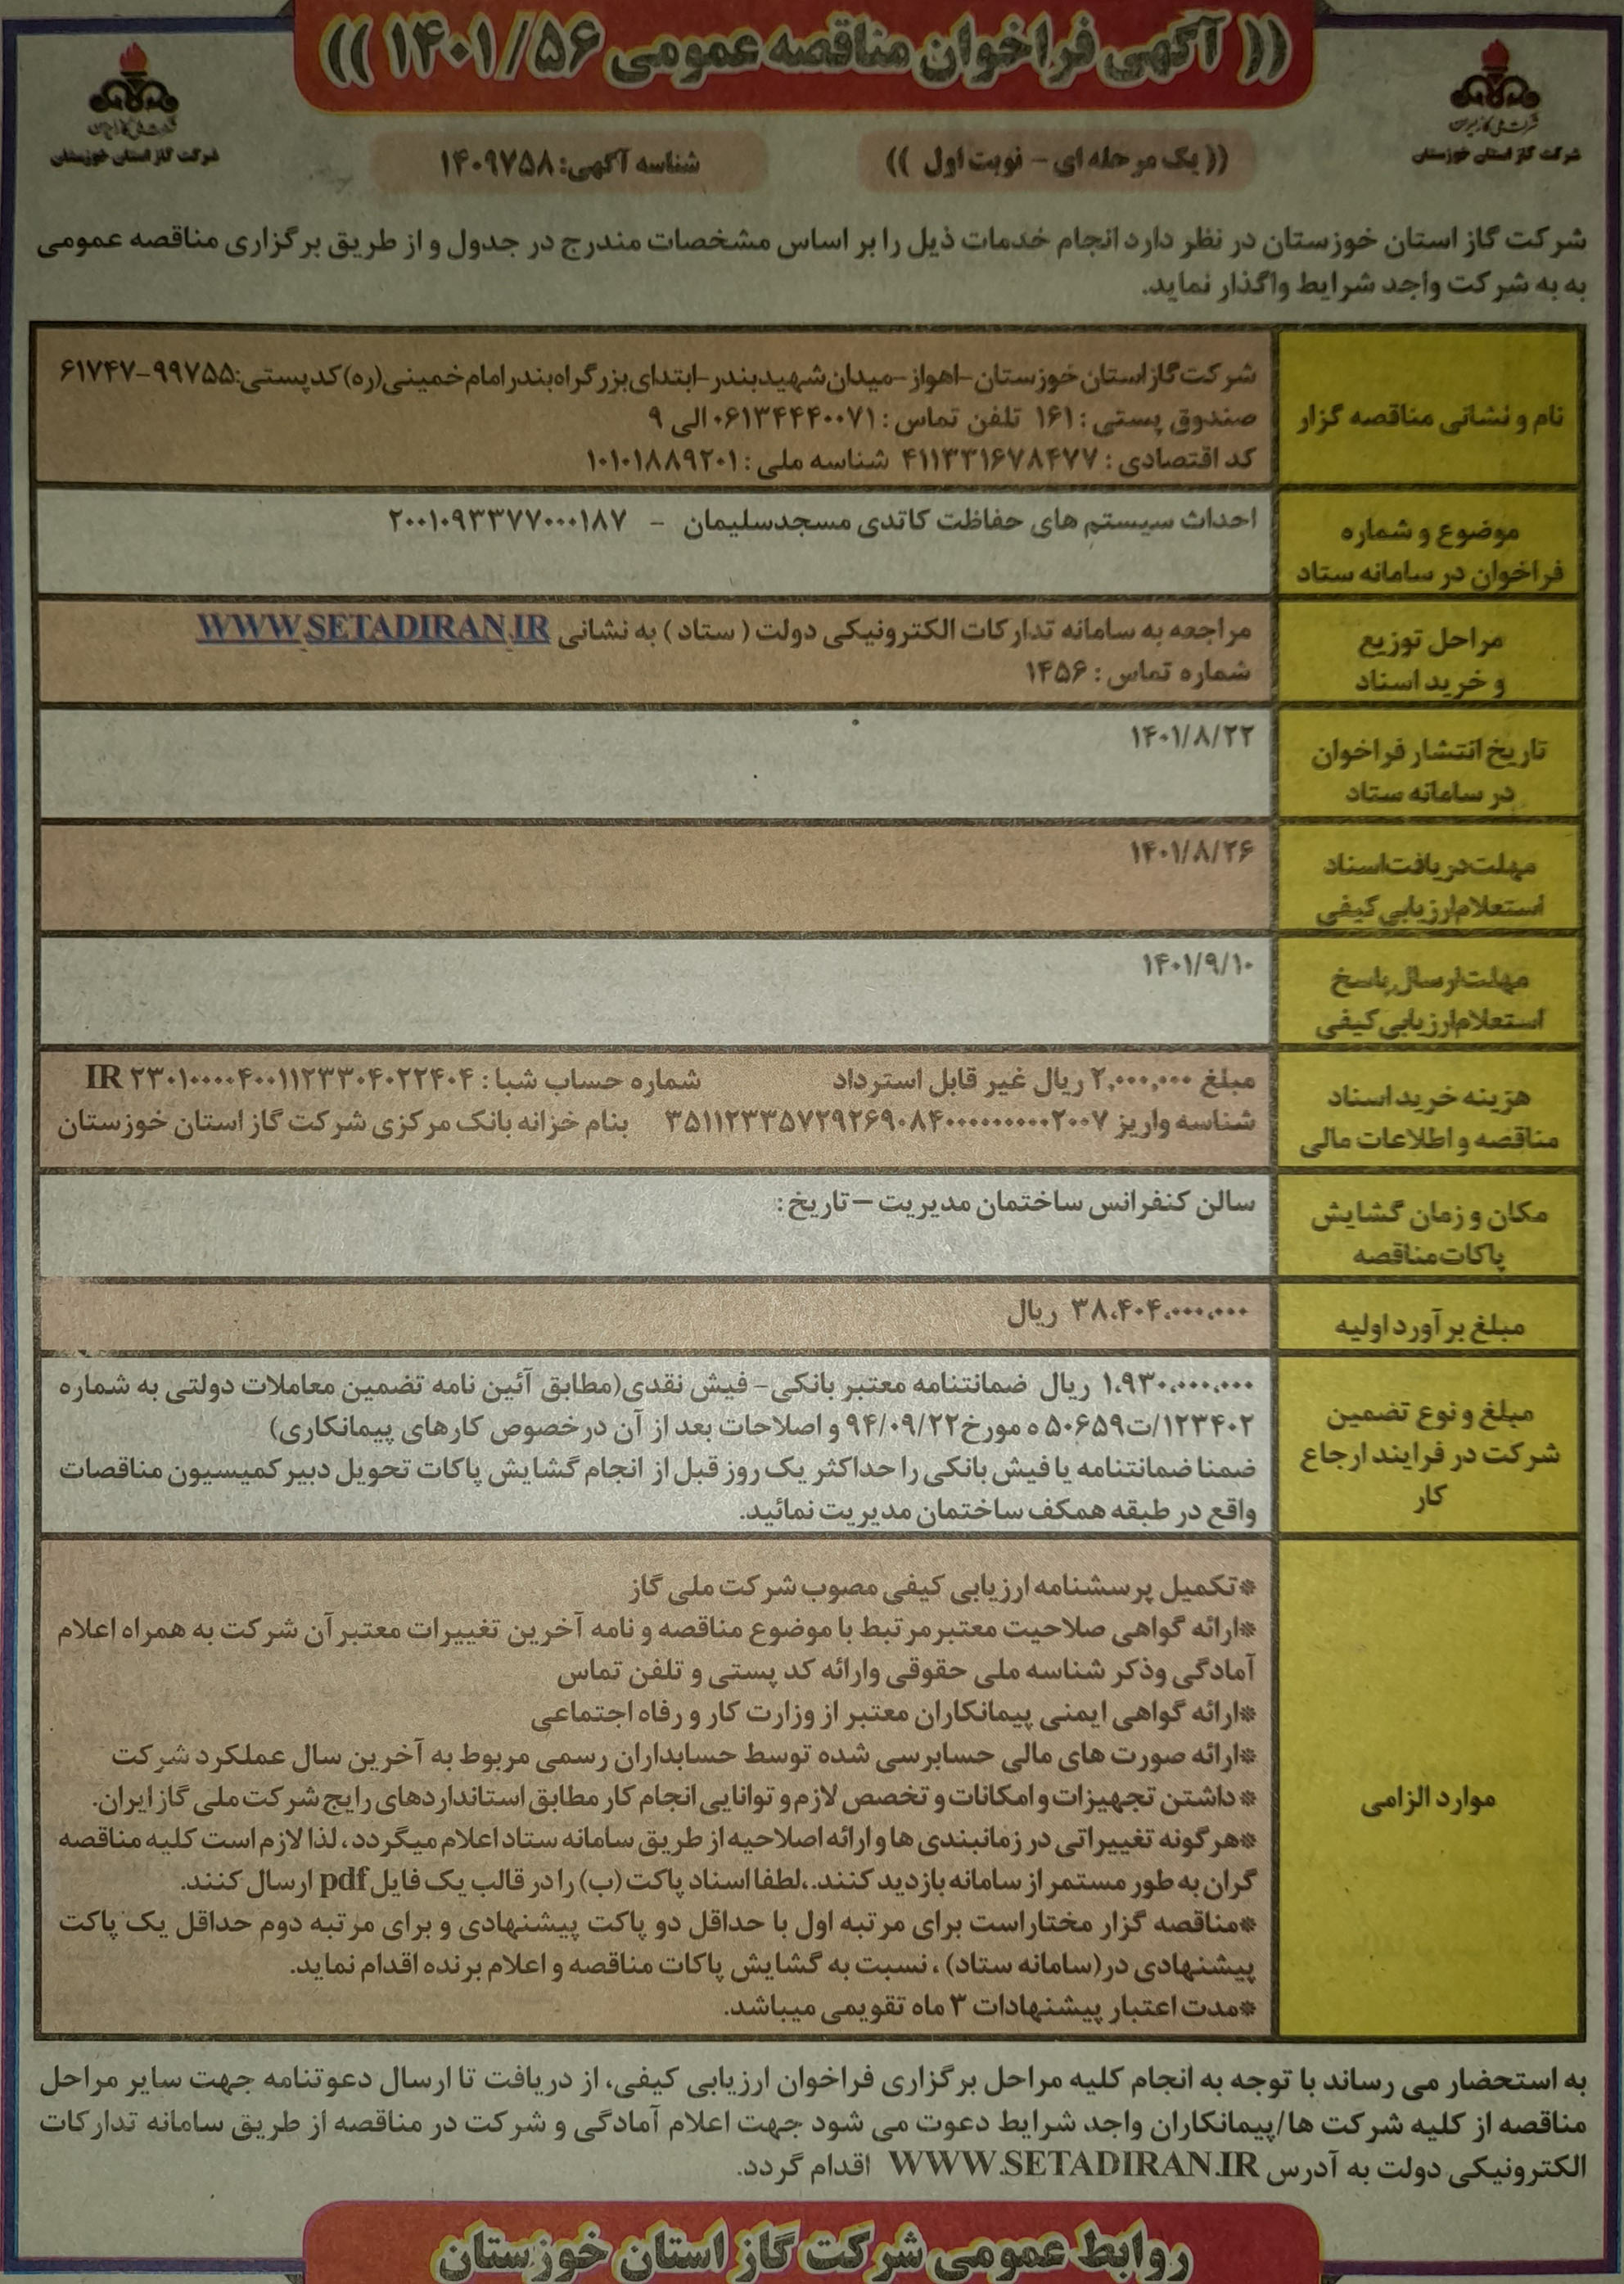 (( آگهی فراخوان مناقصه عمومی ۱۴۰۱/۵۶ ))
شرکت ملی گاز ایران
شرکت گاز استان خوزستان
شرکت ملی گاز ایران
شرکت گاز استان خوزستان
(( یک مرحله ای - نوبت اول ))
شناسه آگهی: ۱۴۰۹۷۵۸
شرکت گاز استان خوزستان در نظر دارد انجام خدمات ذیل را بر اساس مشخصات مندرج در جدول و از طریق برگزاری مناقصه عمومی
به به شرکت واجد شرایط واگذار نماید.
نام و نشانی مناقصه گزار
شرکت گاز استان خوزستان-اهواز-میدان شهید بندر-ابتدای بزرگراه بندر امام خمینی(ره) کد پستی:۹۹۷۵۵-۶۱۷۴۷
صندوق پستی : ۱۶۱ تلفن تماس : ۰۶۱۳۴۴۴۰۰۷۱ الی ۹
کد اقتصادی : ۴۱۱۳۳۱۶۷۸۴۷۷ شناسه ملی : ۱۰۱۰۱۸۸۹۲۰۱
موضوع و شماره
فراخوان در سامانه ستاد
احداث سیستم های حفاظت کاتدی مسجدسلیمان - ۲۰۰۱۰۹۳۳۷۷۰۰۰۱۸۷
مراحل توزیع
و خرید اسناد
مراجعه به سامانه تدارکات الکترونیکی دولت ( ستاد ) به نشانی WWW.SETADIRAN.IR
شماره تماس : ۱۴۵۶
تاریخ انتشار فراخوان
در سامانه ستاد
۱۴۰۱/۸/۲۲
مهلت دریافت اسناد
استعلام ارزیابی کیفی
۱۴۰۱/۸/۲۶
مهلت ارسال پاسخ
استعلام ارزیابی کیفی
۱۴۰۱/۹/۱۰
هزینه خرید اسناد
مناقصه و اطلاعات مالی
مبلغ ۲,۰۰۰,۰۰۰ ریال غیر قابل استرداد شماره حساب شبا : IR ۲۳۰۱۰۰۰۰۴۰۰۱۱۲۳۳۰۴۰۲۲۴۰۴
شناسه واریز ۳۵۱۱۲۳۳۵۷۲۹۲۶۹۰۸۴۰۰۰۰۰۰۰۰۰۰۲۰۰۷ بنام خزانه بانک مرکزی شرکت گاز استان خوزستان
مکان و زمان گشایش
پاکات مناقصه
سالن کنفرانس ساختمان مدیریت – تاریخ :
مبلغ برآورد اولیه
۳۸،۴۰۴،۰۰۰،۰۰۰ ریال
مبلغ و نوع تضمین
شرکت در فرایند ارجاع
کار
۱،۹۳۰،۰۰۰،۰۰۰ ریال ضمانتنامه معتبر بانکی- فیش نقدی(مطابق آئین نامه تضمین معاملات دولتی به شماره
۱۲۳۴۰۲/ت۵۰۶۵۹ ه مورخ ۹۴/۰۹/۲۲ و اصلاحات بعد از آن درخصوص کارهای پیمانکاری)
ضمنا ضمانتنامه یا فیش بانکی را حداکثر یک روز قبل از انجام گشایش پاکات تحویل دبیر کمیسیون مناقصات
واقع در طبقه همکف ساختمان مدیریت نمائید.
موارد الزامی
*تکمیل پرسشنامه ارزیابی کیفی مصوب شرکت ملی گاز
*ارائه گواهی صلاحیت معتبر مرتبط با موضوع مناقصه و نامه آخرین تغییرات معتبر آن شرکت به همراه اعلام
آمادگی وذکر شناسه ملی حقوقی وارائه کد پستی و تلفن تماس
*ارائه گواهی ایمنی پیمانکاران معتبر از وزارت کار و رفاه اجتماعی
*ارائه صورت های مالی حسابرسی شده توسط حسابداران رسمی مربوط به آخرین سال عملکرد شرکت
*داشتن تجهیزات و امکانات و تخصص لازم و توانایی انجام کار مطابق استانداردهای رایج شرکت ملی گاز ایران.
*هرگونه تغییراتی در زمانبندی ها و ارائه اصلاحیه از طریق سامانه ستاد اعلام میگردد، لذا لازم است کلیه مناقصه
گران به طور مستمر از سامانه بازدید کنند.،لطفا اسناد پاکت (ب) را در قالب یک فایل pdf ارسال کنند.
*مناقصه گزار مختاراست برای مرتبه اول با حداقل دو پاکت پیشنهادی و برای مرتبه دوم حداقل یک پاکت
پیشنهادی در(سامانه ستاد) ، نسبت به گشایش پاکات مناقصه و اعلام برنده اقدام نماید.
*مدت اعتبار پیشنهادات ۳ ماه تقویمی میباشد.
به استحضار می رساند با توجه به انجام کلیه مراحل برگزاری فراخوان ارزیابی کیفی، از دریافت تا ارسال دعوتنامه جهت سایر مراحل
مناقصه از کلیه شرکت ها/پیمانکاران واجد شرایط دعوت می شود جهت اعلام آمادگی و شرکت در مناقصه از طریق سامانه تدارکات
الکترونیکی دولت به آدرس WWW.SETADIRAN.IR اقدام گردد.
روابط عمومی شرکت گاز استان خوزستان